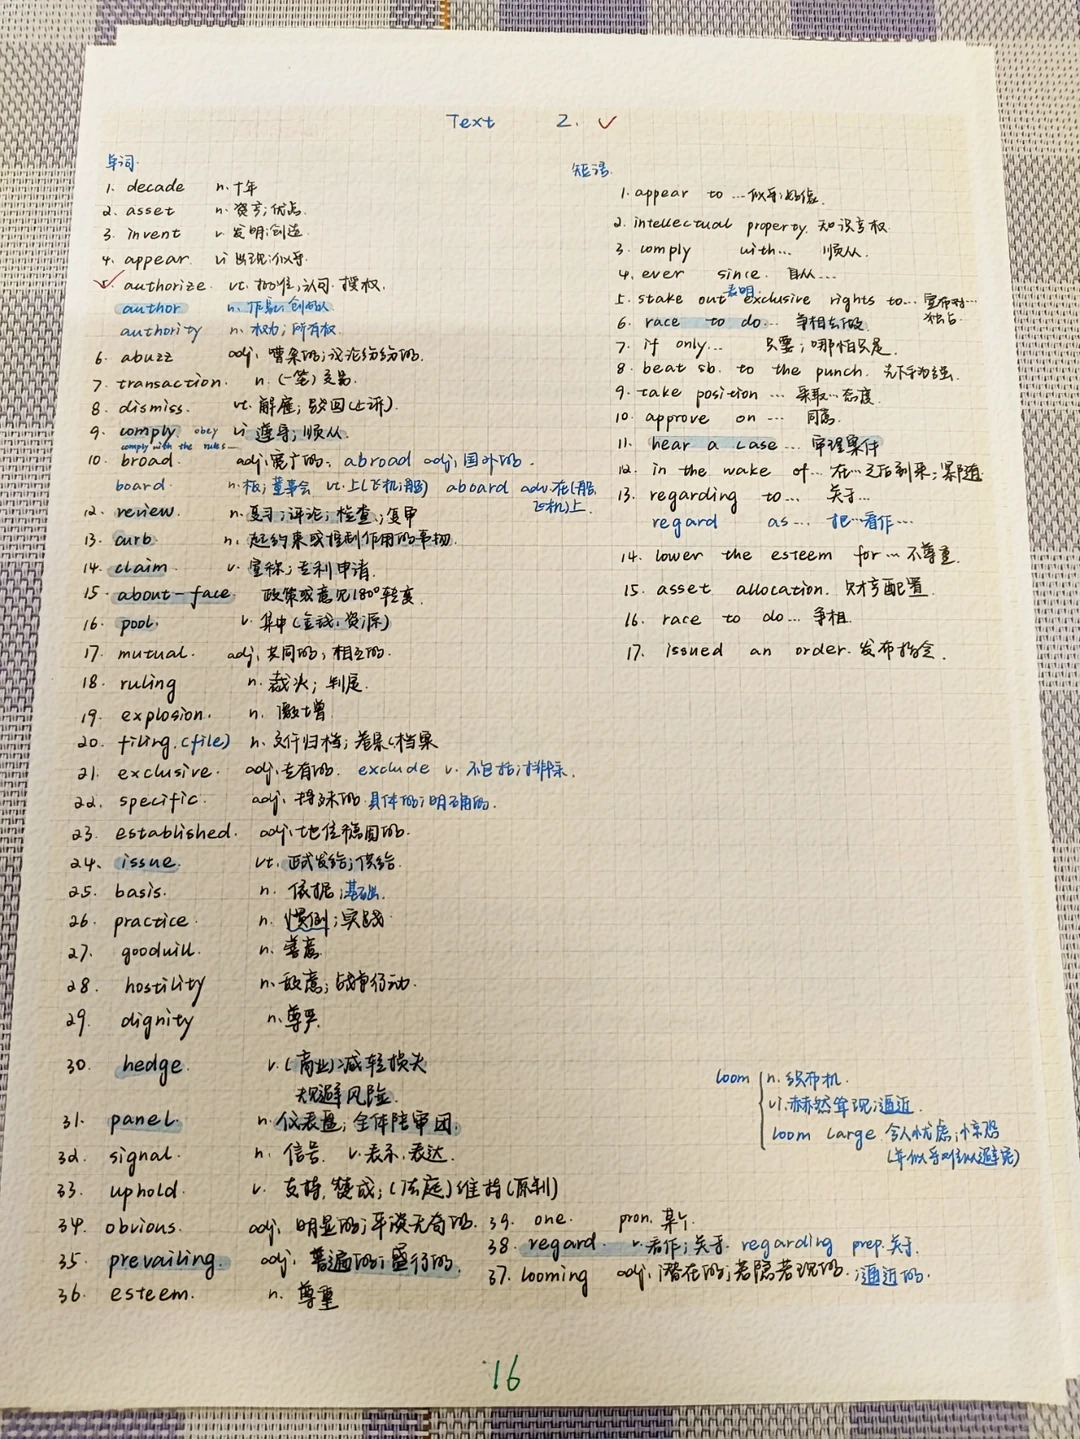 Text 2. ✓
单词.
1. decade n. 十年
2. asset n. 资产;优点.
3. invent v. 发明;创造
4. appear. vi 出现;似乎.
authorize. vt. 批准,认可.授权.
author n. 作家;创始人
authority n. 权力;所有权.
6. abuzz adj. 嘈杂的;议论纷纷的.
7. transaction. n. (一笔)交易
8. dismiss. vt. 解雇;驳回(上诉).
9. comply. obey vi 遵守;顺从.
comply with the rules
10. broad. adj. 宽广的. abroad adj. 国外的.
board n. 板;董事会 vt. 上(飞机;船) aboard adv. 在(船,
飞机)上.
12. review. n. 复习;评论;检查;复审
13. curb n. 起约束或控制作用的事物.
14. claim v. 宣称;专利申请.
15. about-face 政策或意见180°转变.
16. pool. v. 集中(金钱,资源)
17. mutual. adj. 共同的,相互的.
18. ruling n. 裁决;判定.
19. explosion. n. 激增
20. filing.(file) n. 文件归档;卷宗(档案
21. exclusive. adj. 专有的. exclude v. 不包括;排除.
22. specific. adj. 特殊的.具体的;明确的.
23. established. adj. 地位稳固的.
24. issue. vt. 正式发给;供给.
25. basis. n. 依据;基础.
26. practice. n. 惯例;实践
27. goodwill. n. 善意.
28. hostility n. 敌意;战争行动.
29. dignity n. 尊严.
30. hedge v. (商业)减轻损失
规避风险.
31. panel. n. 仪表盘;全体陪审团.
32. signal. n. 信号. v. 表示.表达.
33. uphold. v. 支持,赞成;(法庭)维持(原判)
34. obvious. adj. 明显的;平淡无奇的.
35. prevailing. adj. 普遍的;盛行的.
36. esteem. n. 尊重
短语.
1. appear to … 似乎;好像.
2. intellectual property. 知识产权.
3. comply with… 顺从.
4. ever since. 自从…
表明
5. stake out exclusive rights to… 宣布对…
独占.
6. race to do… 争相去做
7. if only… 只要;哪怕只是.
8. beat sb. to the punch. 先下手为强.
9. take position … 采取…态度.
10. approve on … 同意.
11. hear a case … 审理案件
12. in the wake of… 在…之后到来;紧随
13. regarding to… 关于…
regard as… 把…看作…
14. lower the esteem for… 不尊重.
15. asset allocation. 财产配置.
16. race to do… 争相.
17. issued an order. 发布指令.
loom n. 织布机.
vi. 赫然耸现;逼近.
loom large 令人忧虑;惊恐
(并似乎难以避免)
39. one. pron. 某个.
38. regard. v. 看作;关于. regarding prep. 关于.
37. looming adj. 潜在的;若隐若现的.逼近的.
16